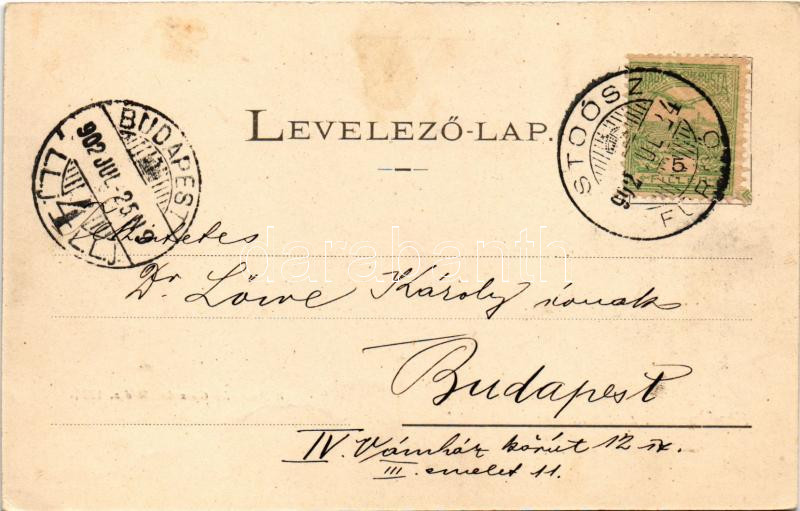 LEVELEZŐ-LAP.
BUDAPEST
902 JUL. 25 N 9
4
STOÓSZ
902 JUL 24
FÜR
5
darabanth
Dr. Löwe Károly úrnak
Budapest
IV. Vámház körút 12 sz.
III. emelet 11.